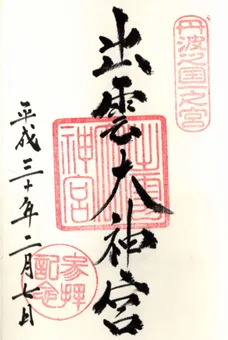 丹波之国一之宮
出雲大神宮
出雲大神宮
平成三十年二月七日
参拝記念